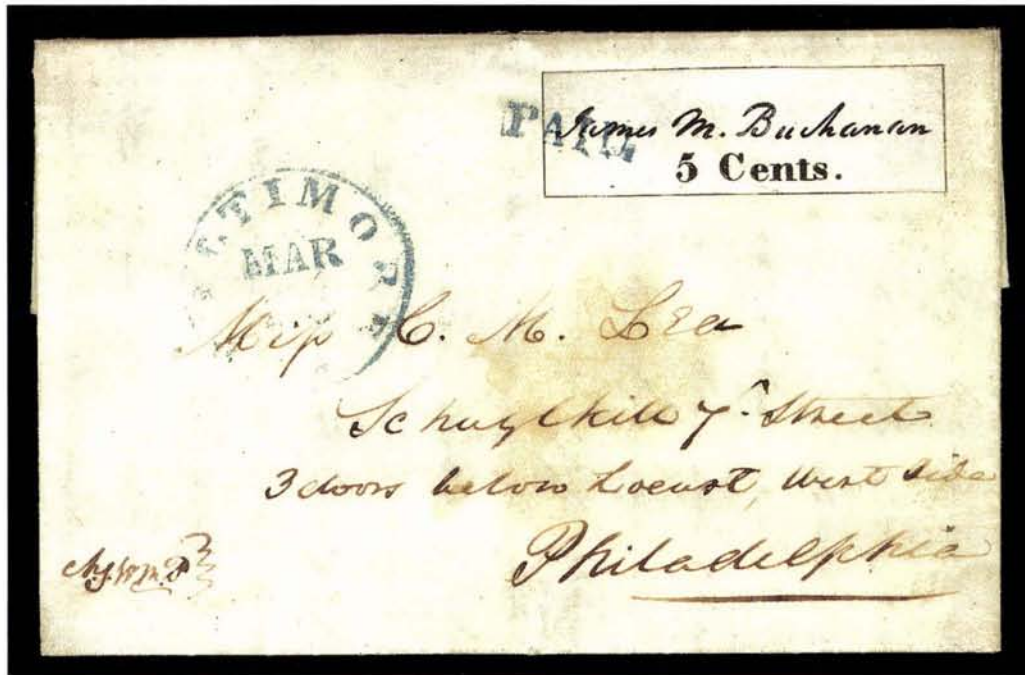 PAID
James M. Buchanan
5 Cents.
TIMOR
MAR
Miss C. M. Lea
Schuylkill 7th Street
3 doors below Locust, West side
Philadelphia